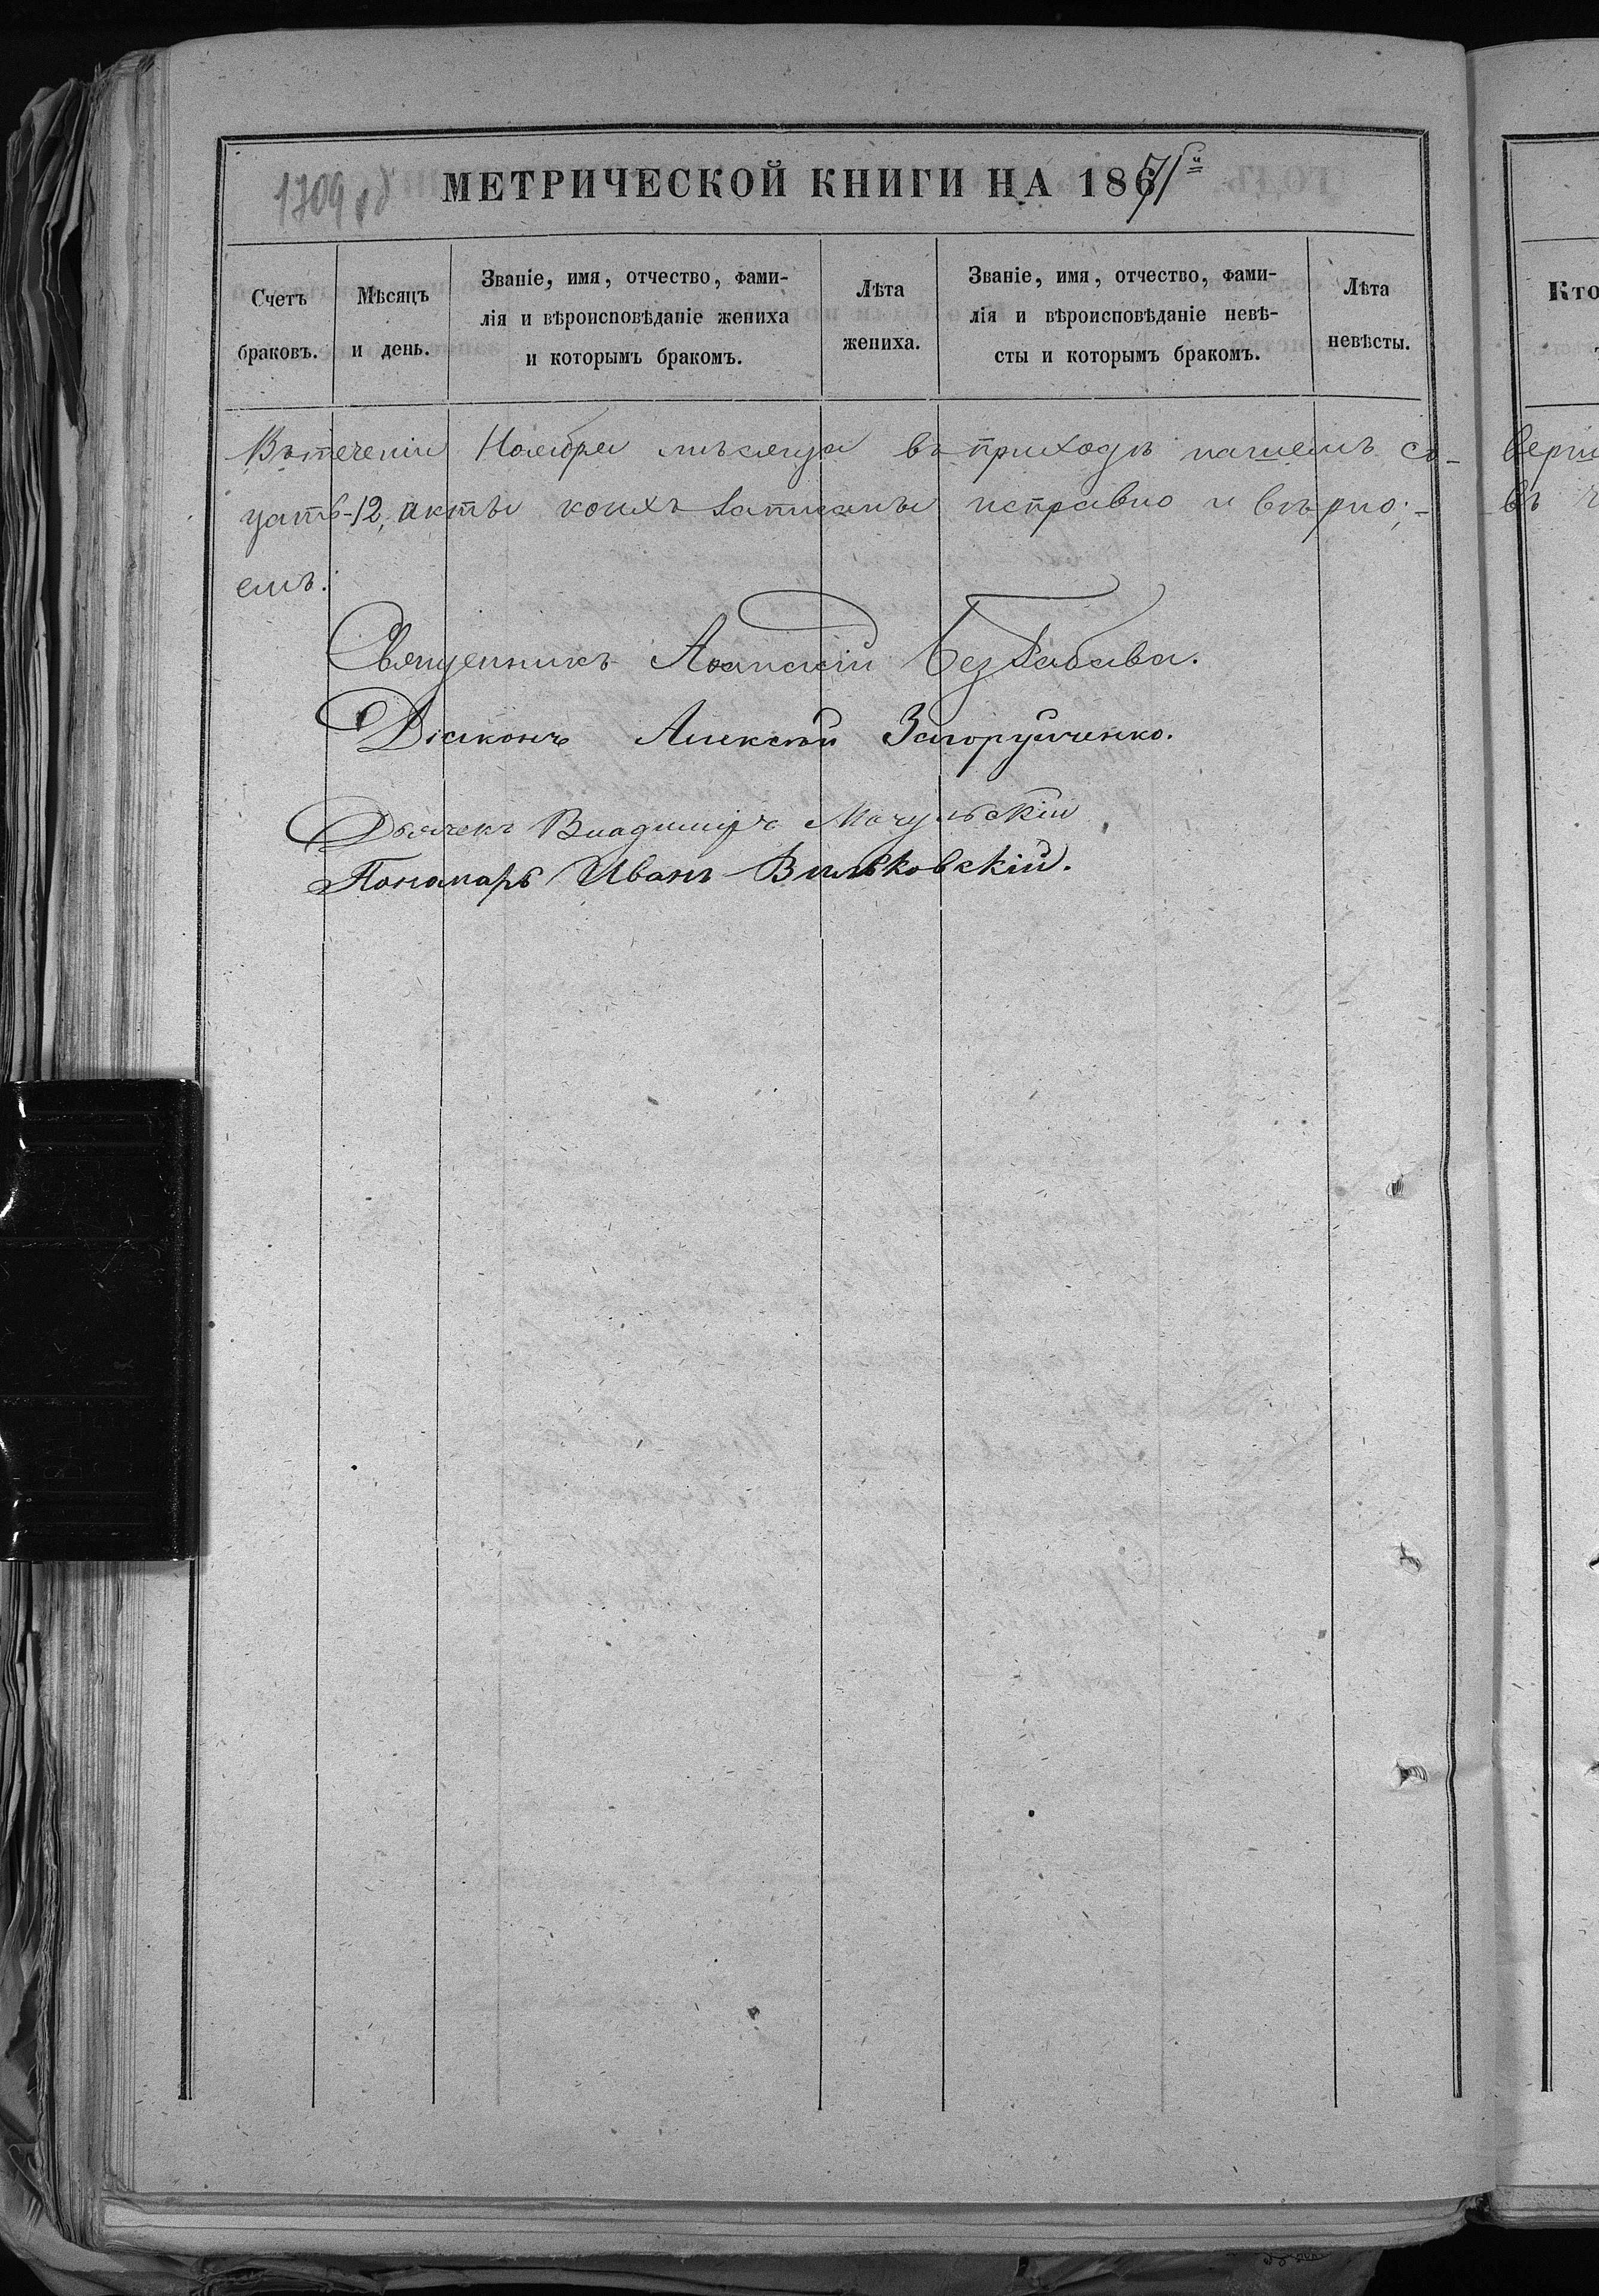 1709 об
МЕТРИЧЕСКОЙ КНИГИ НА 1871й
Счетъ браковъ.
Мѣсяцъ и день.
Званіе, имя, отчество, фами-
лія и вѣроисповѣданіе жениха
и которымъ бракомъ.
Лѣта жениха.
Званіе, имя, отчество, фами-
лія и вѣроисповѣданіе невѣ-
сты и которымъ бракомъ.
Лѣта невѣсты.
Въ теченіи Ноября мѣсяца въ приходѣ нашемъ со-
цать-12, акты коихъ записаны исправно и вѣрно;-
емъ.
Священникъ Беззабава.
Діаконъ Алексѣй Загоруйченко.
Дьячекъ Владиміръ Мачульскій
Пономарь Иванъ Вильковскій.
Кто
верш
въ ч